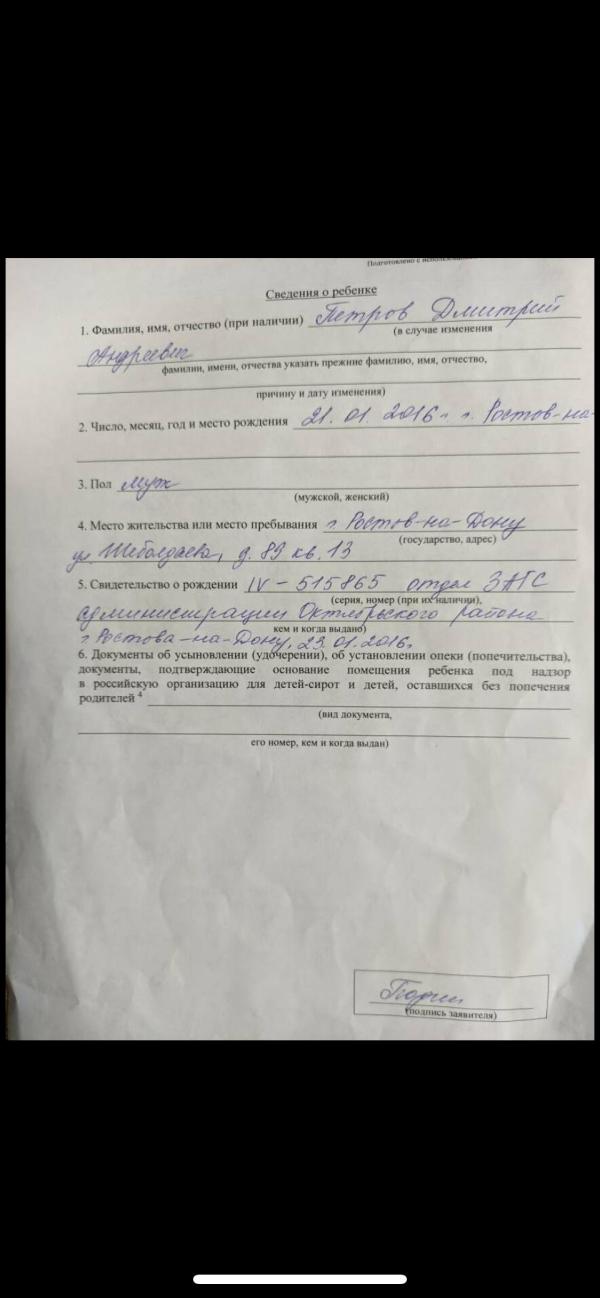 Подготовлено с использован
Сведения о ребенке
1. Фамилия, имя, отчество (при наличии) Петров Дмитрий
(в случае изменения
Андреевич
фамилии, имени, отчества указать прежние фамилию, имя, отчество,
причину и дату изменения)
2. Число, месяц, год и место рождения 21. 01. 2016 г. г. Ростов-на-
3. Пол муж
(мужской, женский)
4. Место жительства или место пребывания г. Ростов-на-Дону
(государство, адрес)
ул. Шеболдаева, д. 89 кв. 13
5. Свидетельство о рождении IV - 515865 отдел ЗАГС
(серия, номер (при их наличии),
администрации Октябрьского района
кем и когда выдано)
г. Ростова-на-Дону, 23.01.2016г.
6. Документы об усыновлении (удочерении), об установлении опеки (попечительства),
документы, подтверждающие основание помещения ребенка под надзор
в российскую организацию для детей-сирот и детей, оставшихся без попечения
родителей 4
(вид документа,
его номер, кем и когда выдан)
(подпись заявителя)